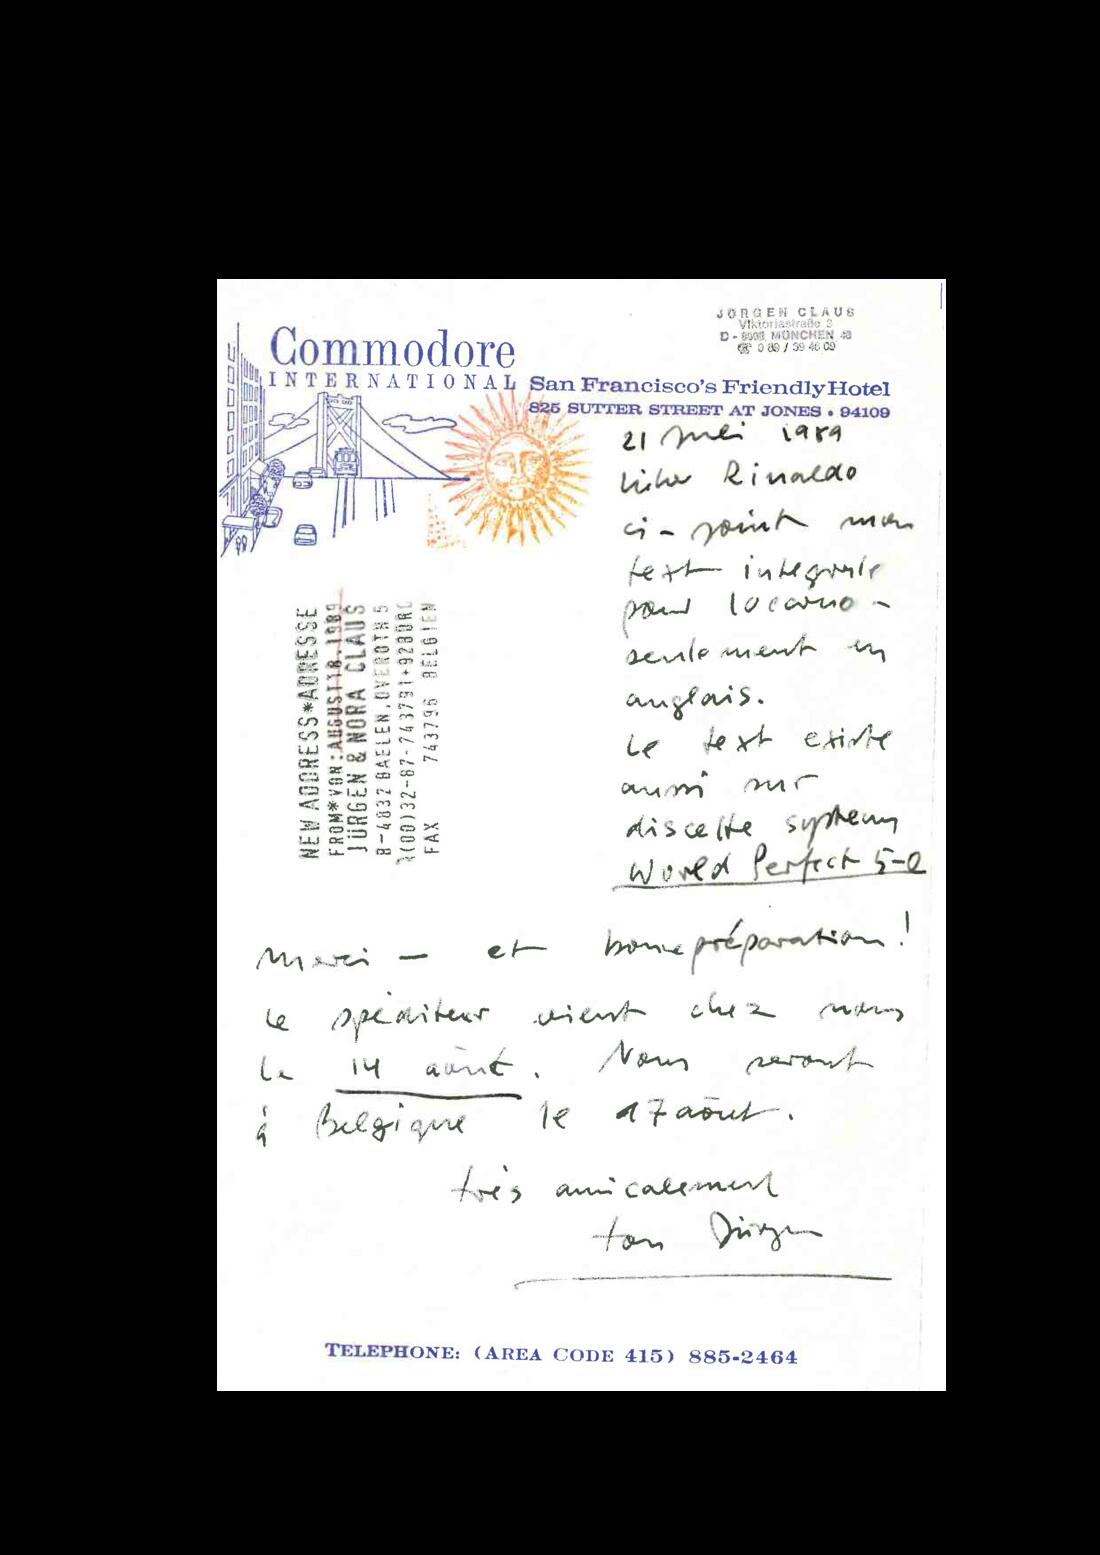 JÜRGEN CLAUS
Viktoriastraße 3
D-8000 MÜNCHEN 40
☎ 0 89 / 39 46 09
Commodore
INTERNATIONAL San Francisco's Friendly Hotel
825 SUTTER STREET AT JONES • 94109
21 1989
Lieber Rinaldo
ci-joint mon
text integrale
pour Locarno -
seulement en
anglais.
Le text existe
aussi sur
discette system
World Perfect 5-0
NEW ADDRESS*ADRESSE
FROM*VON:AUGUST18.1989
JÜRGEN & NORA CLAUS
B-4837 BAELEN,OVEROTH 5
(00)32-87-743791+928
FAX 743796 BELGIEN
Merci - et bonne préparation!
Le spéditeur vient chez nous
le 14 août. Nous seront
à Belgique le 17 août.
très amicalement
ton Jürgen
TELEPHONE: (AREA CODE 415) 885-2464